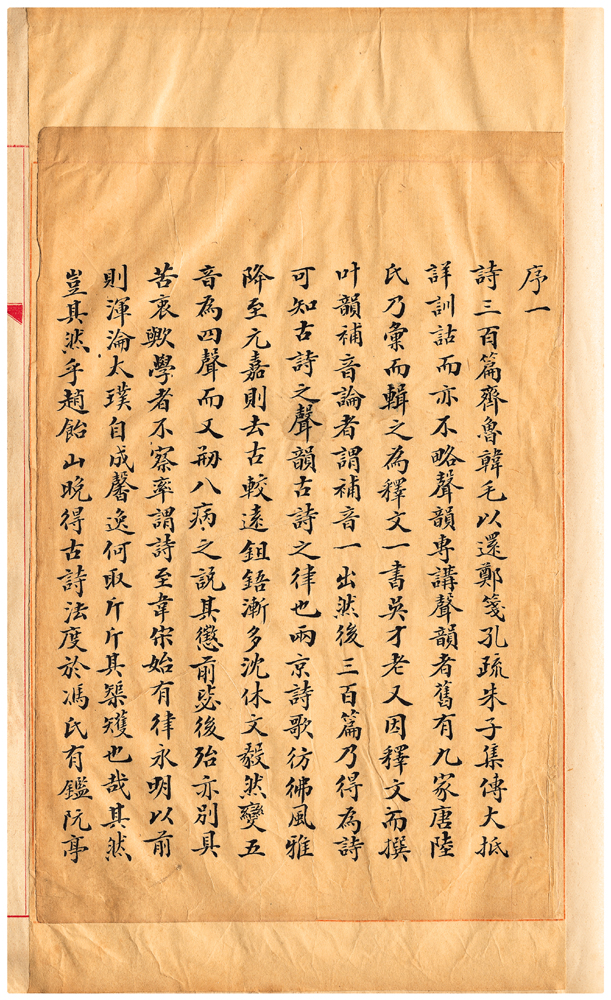 序一
詩三百篇齊魯韓毛以還鄭箋孔疏朱子集傳大抵
詳訓詁而亦不略聲韻專講聲韻者舊有九家唐陸
氏乃彙而輯之為釋文一書吳才老又因釋文而撰
叶韻補音論者謂補音一出然後三百篇乃得為詩
可知古詩之聲韻古詩之律也兩京詩歌彷彿風雅
降至元嘉則去古較遠鉏鋙漸多沈休文毅然變五
音為四聲而又刱八病之説其懲前毖後殆亦別具
苦衷歟學者不察率謂詩至韋宋始有律永明以前
則渾淪太璞自成馨逸何取斤斤其榘矱也哉其然
豈其然乎趙飴山晚得古詩法度於馮氏有鑑阮亭